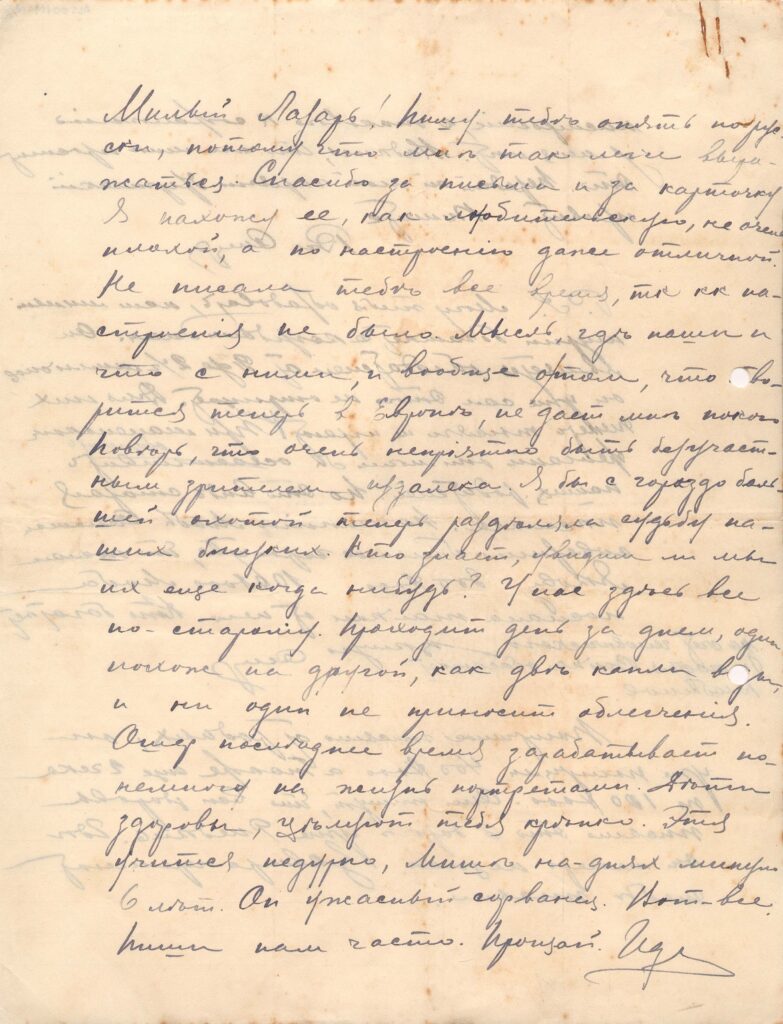 Милый Лазарь! Пишу тебѣ опять по рус-
ски, потому что мнѣ так легче выра-
жаться. Спасибо за письма и за карточку
Я нахожу ее, как любительскую, не очень
плохой, а по настроенію даже отличной.
Не писала тебѣ все время, тк кк на-
строенія не было. Мысль, гдѣ наши и
что с ними, и вообще о том, что тво-
рится теперь в Европѣ, не дает мнѣ покоя
Повторь, что очень непріятно быть безучаст-
ным зрителем издалека. Я бы с гораздо боль
шей охотой теперь раздѣляла судьбу на-
ших близких. Кто знает, увидим ли мы
их еще когда нибудь? У нас здѣсь все
по-старому. Проходит день за днем, один
похож на другой, как двѣ капли воды,
и ни один не приносит облегченія.
Ошер послѣднее время зарабатывает по-
немногу на жизнь портретами. Дѣти
здоровы, цѣлуют тебя крѣпко. Этя
учится недурно, Мишѣ на-днях минуло
6 лѣт. Он ужасный сорванец. Вот-все.
Пиши нам часто. Прощай. Ида